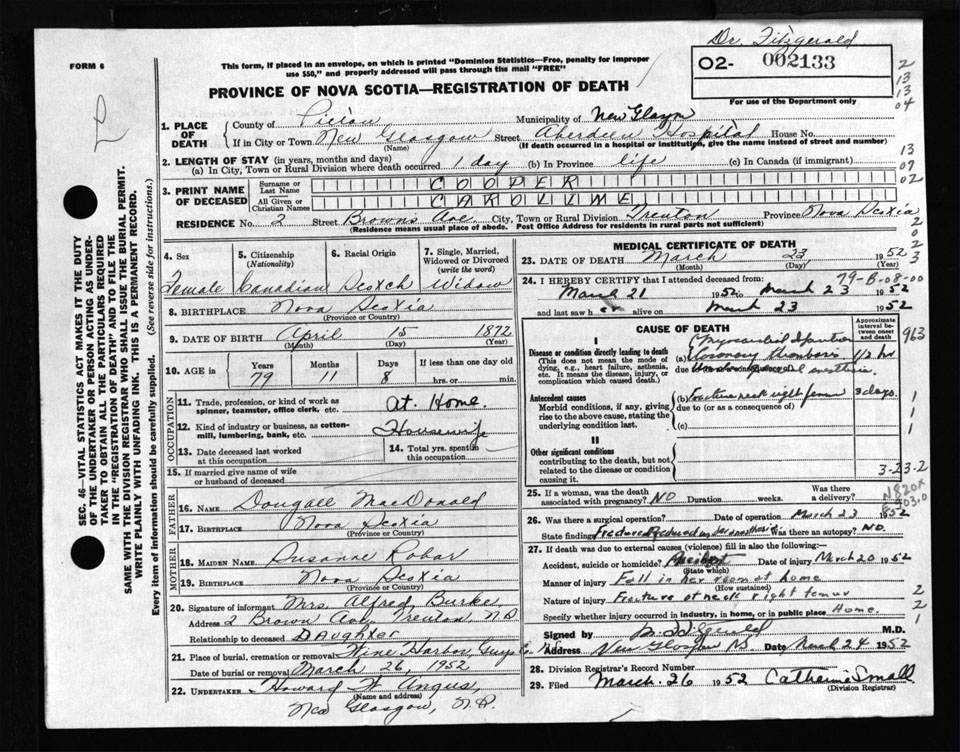 Dr. Fitzgerald
FORM 6
This form, if placed in an envelope, on which is printed "Dominion Statistics—Free, penalty for improper
use $50," and properly addressed will pass through the mail "FREE"
O2- 002133
For use of the Department only
PROVINCE OF NOVA SCOTIA—REGISTRATION OF DEATH
2
13
13
04
1. PLACE OF DEATH
County of Pictou Municipality of New Glasgow
If in City or Town New Glasgow Street Aberdeen Hospital House No.
(Name) (If death occurred in a hospital or institution, give the name instead of street and number)
2. LENGTH OF STAY (in years, months and days)
(a) In City, Town or Rural Division where death occurred 1 day (b) In Province life (c) In Canada (if immigrant)
13
07
02
3. PRINT NAME OF DECEASED
Surname or Last Name COOPER
All Given or Christian Names CAROLINE
RESIDENCE No. 2 Street Browns Ave. City, Town or Rural Division Trenton Province Nova Scotia
(Residence means usual place of abode. Post Office Address for residents in rural parts not sufficient)
2
0
2
3
SEC. 46—VITAL STATISTICS ACT MAKES IT THE DUTY
OF THE UNDERTAKER OR PERSON ACTING AS UNDER-
TAKER TO OBTAIN ALL THE PARTICULARS REQUIRED
IN THE "REGISTRATION OF DEATH" AND TO FILE THE
SAME WITH THE DIVISION REGISTRAR WHO SHALL ISSUE THE BURIAL PERMIT.
WRITE PLAINLY WITH UNFADING INK. THIS IS A PERMANENT RECORD.
Every item of information should be carefully supplied. (See reverse side for instructions.)
4. Sex 5. Citizenship (Nationality) 6. Racial Origin 7. Single, Married, Widowed or Divorced (write the word)
Female Canadian Scotch Widow
8. BIRTHPLACE Nova Scotia
(Province or Country)
9. DATE OF BIRTH April 15 1872
(Month) (Day) (Year)
10. AGE in Years Months Days If less than one day old
79 11 8 hrs. or min.
OCCUPATION
11. Trade, profession, or kind of work as
spinner, teamster, office clerk, etc. At Home.
12. Kind of industry or business, as cotton-
mill, lumbering, bank, etc. Housewife
13. Date deceased last worked at this occupation 14. Total yrs. spent in this occupation
15. If married give name of wife
or husband of deceased
FATHER
16. NAME Dougall MacDonald
17. BIRTHPLACE Nova Scotia
(Province or Country)
MOTHER
18. MAIDEN NAME Susanne Robar
19. BIRTHPLACE Nova Scotia
(Province or Country)
20. Signature of informant Mrs. Alfred Burke
Address 2 Brown Ave. Trenton, N.S
Relationship to deceased Daughter
21. Place of burial, cremation or removal Wine Harbor, Guys Co.
Date of burial or removal March 26, 1952
22. UNDERTAKER Howard W Angus,
(Name and address)
New Glasgow, N.S.
MEDICAL CERTIFICATE OF DEATH
23. DATE OF DEATH March 23 1952
(Month) (Day) (Year)
79-B-08-00
24. I HEREBY CERTIFY that I attended deceased from:
March 21 1952 to March 23 1952
and last saw h er alive on March 23 1952
CAUSE OF DEATH
Approximate interval between onset and death
963
I
Disease or condition directly leading to death
(This does not mean the mode of
dying, e.g., heart failure, asthenia,
etc. It means the disease, injury, or
complication which caused death.)
Myocardial Infarction
(a) Coronary thrombosis 1/2 hr
due to (or as a consequence of)
Antecedent causes
Morbid conditions, if any, giving
rise to the above cause, stating the
underlying condition last.
(b) Fracture neck right femur 3 days.
due to (or as a consequence of)
(c)
1
1
1
II
Other significant conditions
contributing to the death, but not
related to the disease or condition
causing it.
3-23-2
25. If a woman, was the death
associated with pregnancy? NO Duration weeks. Was there a delivery?
N820X
26. Was there a surgical operation? Date of operation March 23 1952
State finding Fracture Reduced Was there an autopsy? NO.
27. If death was due to external causes (violence) fill in also the following:—
Accident, suicide or homicide? Accident Date of injury March 20 1952
(State which)
Manner of injury Fall in her room at home
(How sustained)
Nature of injury Fracture of neck right femur
Specify whether injury occurred in industry, in home, or in public place Home.
2
2
1
Signed by M.D.
Address New Glasgow NS Date March 24 1952
28. Division Registrar's Record Number
29. Filed March. 26 1952 Catherine Small
(Division Registrar)